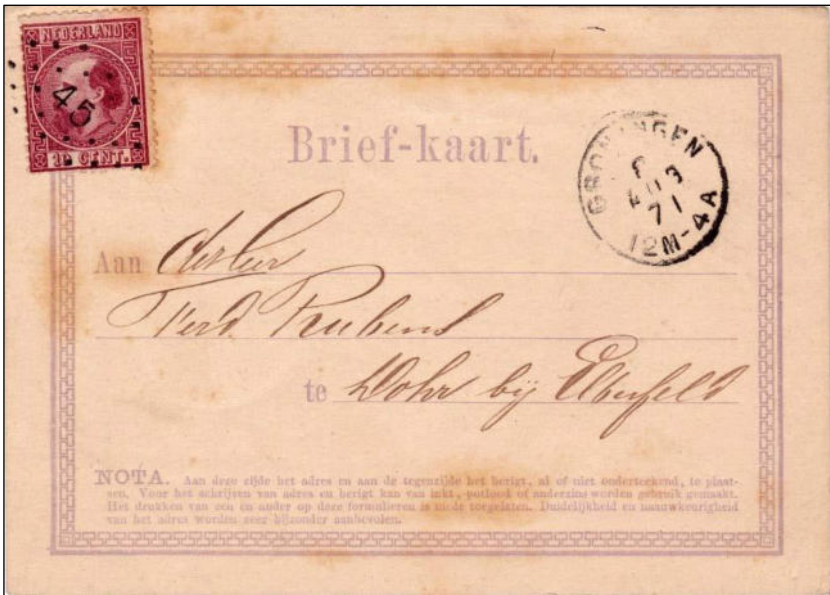 NEDERLAND
45
10 CENT.
Brief-kaart.
GRONINGEN
8
AUG
71
12M-4A
Aan den Heer
Ferd. Rubens
te Dohr bij Elberfeld
NOTA. Aan deze zijde het adres en aan de tegenzijde het berigt, al of niet onderteekend, te plaat-
sen. Voor het schrijven van adres en berigt kan van inkt, potlood of anderzins worden gebruik gemaakt.
Het drukken van een en ander op deze formulieren is mede toegelaten. Duidelijkheid en naauwkeurigheid
van het adres worden zeer bijzonder aanbevolen.